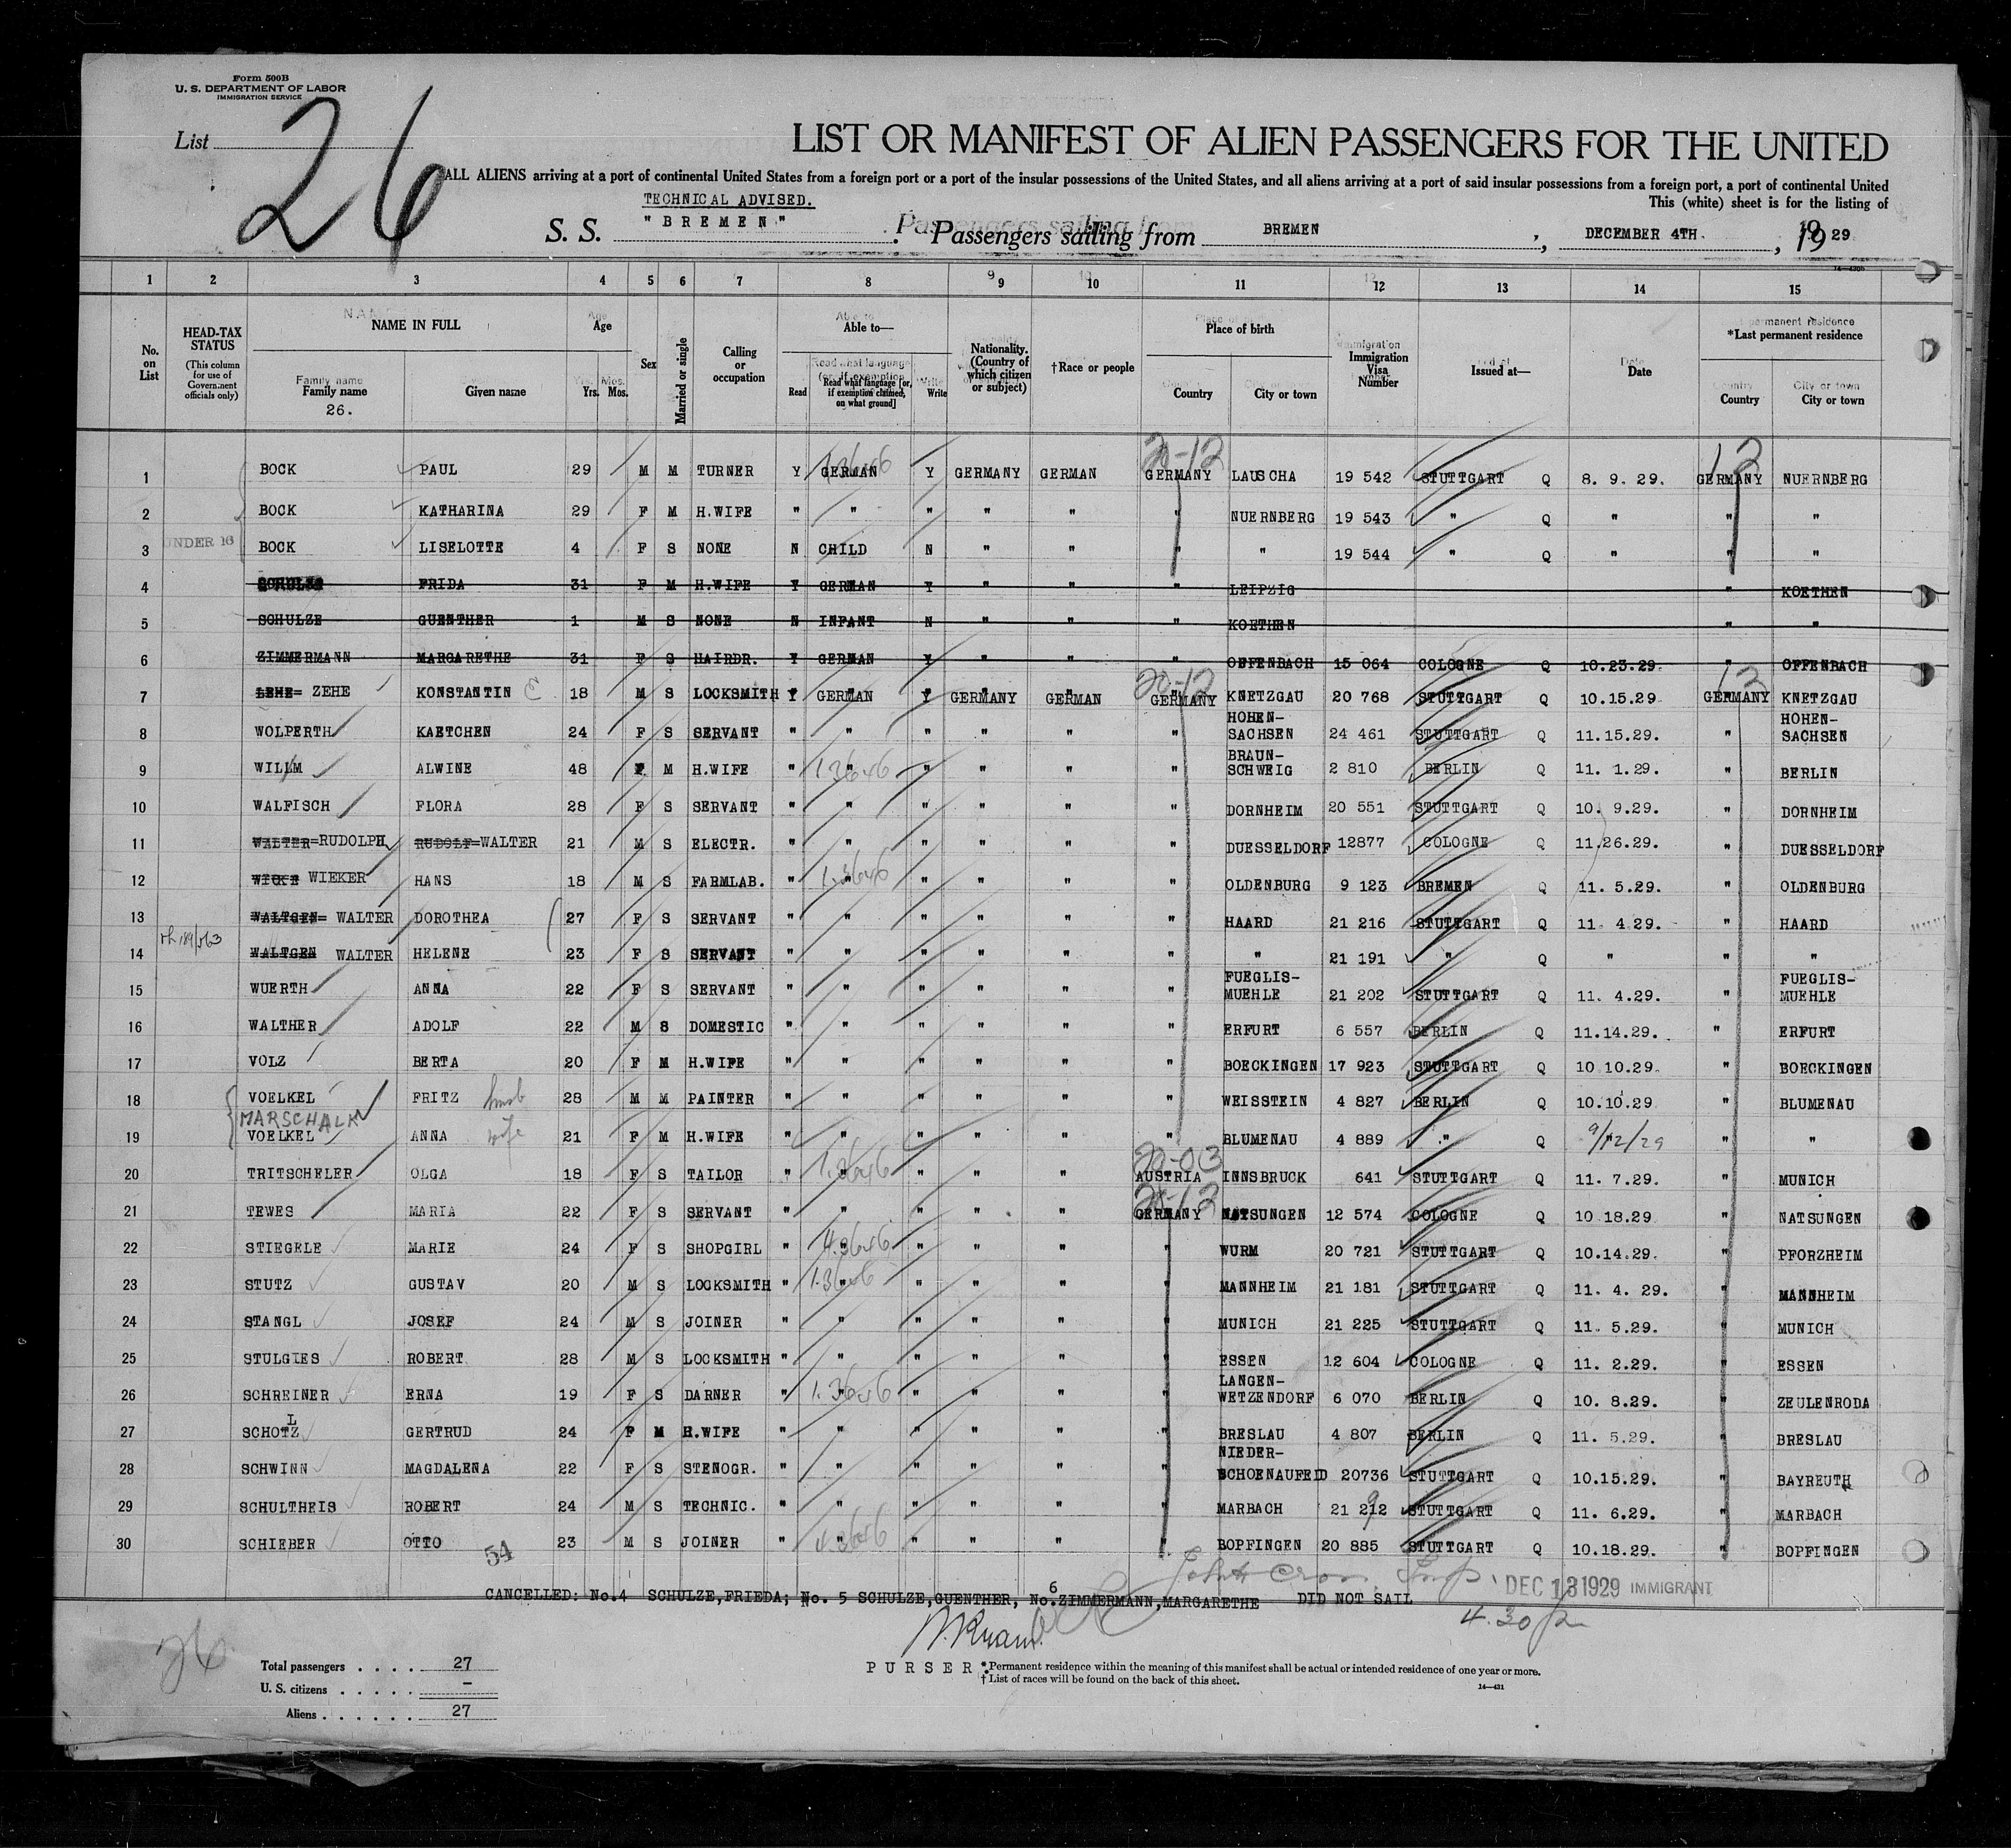 Form 500B
U. S. DEPARTMENT OF LABOR
IMMIGRATION SERVICE
List 26
LIST OR MANIFEST OF ALIEN PASSENGERS FOR THE UNITED
ALL ALIENS arriving at a port of continental United States from a foreign port or a port of the insular possessions of the United States, and all aliens arriving at a port of said insular possessions from a foreign port, a port of continental United
This (white) sheet is for the listing of
TECHNICAL ADVISED.
S. S. "BREMEN" Passengers sailing from BREMEN, DECEMBER 4TH., 1929
1 2 3 4 5 6 7 8 9 10 11 12 13 14 15
No. on List
HEAD-TAX STATUS (This column for use of Government officials only)
NAME IN FULL Family name Given name
26.
Age Yrs. Mos.
Sex
Married or single
Calling or occupation
Able to— Read Read what language [or, if exemption claimed, on what ground] Write
Nationality. (Country of which citizen or subject)
†Race or people
Place of birth Country City or town
Immigration Visa Number
Issued at—
Date
*Last permanent residence Country City or town
20-12 12
1 BOCK PAUL 29 M M TURNER Y GERMAN Y GERMANY GERMAN GERMANY LAUSCHA 19 542 STUTTGART Q 8. 9. 29. GERMANY NUERNBERG
2 BOCK KATHARINA 29 F M H.WIFE " " " " " " NUERNBERG 19 543 " Q " " "
3 UNDER 16 BOCK LISELOTTE 4 F S NONE N CHILD N " " " " 19 544 " Q " " "
4 SCHULZE FRIDA 31 F M H.WIFE Y GERMAN Y " " " LEIPZIG " KOETHEN
5 SCHULZE GUENTHER 1 M S NONE N INFANT N " " " KOETHEN " "
6 ZIMMERMANN MARGARETHE 31 F S HAIRDR. Y GERMAN Y " " " OFFENBACH 15 064 COLOGNE Q 10.23.29. " OFFENBACH
20-12 12
7 LEHE= ZEHE KONSTANTIN 18 M S LOCKSMITH Y GERMAN Y GERMANY GERMAN GERMANY KNETZGAU 20 768 STUTTGART Q 10.15.29. GERMANY KNETZGAU
8 WOLPERTH KAETCHEN 24 F S SERVANT " " " " " " HOHEN-SACHSEN 24 461 STUTTGART Q 11.15.29. " HOHEN-SACHSEN
9 WILLM ALWINE 48 F M H.WIFE " " " " " " BRAUN-SCHWEIG 2 810 BERLIN Q 11. 1.29. " BERLIN
10 WALFISCH FLORA 28 F S SERVANT " " " " " " DORNHEIM 20 551 STUTTGART Q 10. 9.29. " DORNHEIM
11 WALTER=RUDOLPH RUDOLF=WALTER 21 M S ELECTR. " " " " " " DUESSELDORF 12877 COLOGNE Q 11.26.29. " DUESSELDORF
12 WIEKER HANS 18 M S FARMLAB. " " " " " " OLDENBURG 9 123 BREMEN Q 11. 5.29. " OLDENBURG
13 WALTGEN= WALTER DOROTHEA 27 F S SERVANT " " " " " " HAARD 21 216 STUTTGART Q 11. 4.29. " HAARD
14 WALTGEN WALTER HELENE 23 F S SERVANT " " " " " " " 21 191 " Q " " "
15 WUERTH ANNA 22 F S SERVANT " " " " " " FUEGLIS-MUEHLE 21 202 STUTTGART Q 11. 4.29. " FUEGLIS-MUEHLE
16 WALTHER ADOLF 22 M S DOMESTIC " " " " " " ERFURT 6 557 BERLIN Q 11.14.29. " ERFURT
17 VOLZ BERTA 20 F M H.WIFE " " " " " " BOECKINGEN 17 923 STUTTGART Q 10 10.29. " BOECKINGEN
18 VOELKEL FRITZ husb 28 M M PAINTER " " " " " " WEISSTEIN 4 827 BERLIN Q 10.10.29 " BLUMENAU
MARSCHALK
19 VOELKEL ANNA wife 21 F M H.WIFE " " " " " " BLUMENAU 4 889 " Q 9/12/29 " "
20-03
20 TRITSCHELER OLGA 18 F S TAILOR " " " " " AUSTRIA INNSBRUCK 641 STUTTGART Q 11. 7.29. " MUNICH
20-12
21 TEWES MARIA 22 F S SERVANT " " " " " GERMANY NATSUNGEN 12 574 COLOGNE Q 10 18.29 " NATSUNGEN
22 STIEGELE MARIE 24 F S SHOPGIRL " " " " " " WURM 20 721 STUTTGART Q 10.14.29. " PFORZHEIM
23 STUTZ GUSTAV 20 M S LOCKSMITH " " " " " " MANNHEIM 21 181 STUTTGART Q 11. 4. 29. " MANNHEIM
24 STANGL JOSEF 24 M S JOINER " " " " " " MUNICH 21 225 STUTTGART Q 11. 5.29. " MUNICH
25 STULGIES ROBERT 28 M S LOCKSMITH " " " " " " ESSEN 12 604 COLOGNE Q 11. 2.29. " ESSEN
26 SCHREINER ERNA 19 F S DARNER " " " " " " LANGEN-WETZENDORF 6 070 BERLIN Q 10. 8.29. " ZEULENRODA
27 SCHOLTZ GERTRUD 24 F M H.WIFE " " " " " " BRESLAU 4 807 BERLIN Q 11. 5.29. " BRESLAU
28 SCHWINN MAGDALENA 22 F S STENOGR. " " " " " " NIEDER-SCHOENAUFELD 20736 STUTTGART Q 10.15.29. " BAYREUTH
29 SCHULTHEIS ROBERT 24 M S TECHNIC. " " " " " " MARBACH 21 212 STUTTGART Q 11. 6.29. " MARBACH
30 SCHIEBER OTTO 23 M S JOINER " " " " " " BOPFINGEN 20 885 STUTTGART Q 10.18.29. " BOPFINGEN
54
DEC 13 1929 IMMIGRANT
CANCELLED: No.4 SCHULZE,FRIEDA; No. 5 SCHULZE,GUENTHER, No.6 ZIMMERMANN,MARGARETHE DID NOT SAIL
4.30
26
PURSER.
Total passengers . . . . 27
U. S. citizens . . . . . –
Aliens . . . . . . 27
*Permanent residence within the meaning of this manifest shall be actual or intended residence of one year or more.
†List of races will be found on the back of this sheet.
14—431